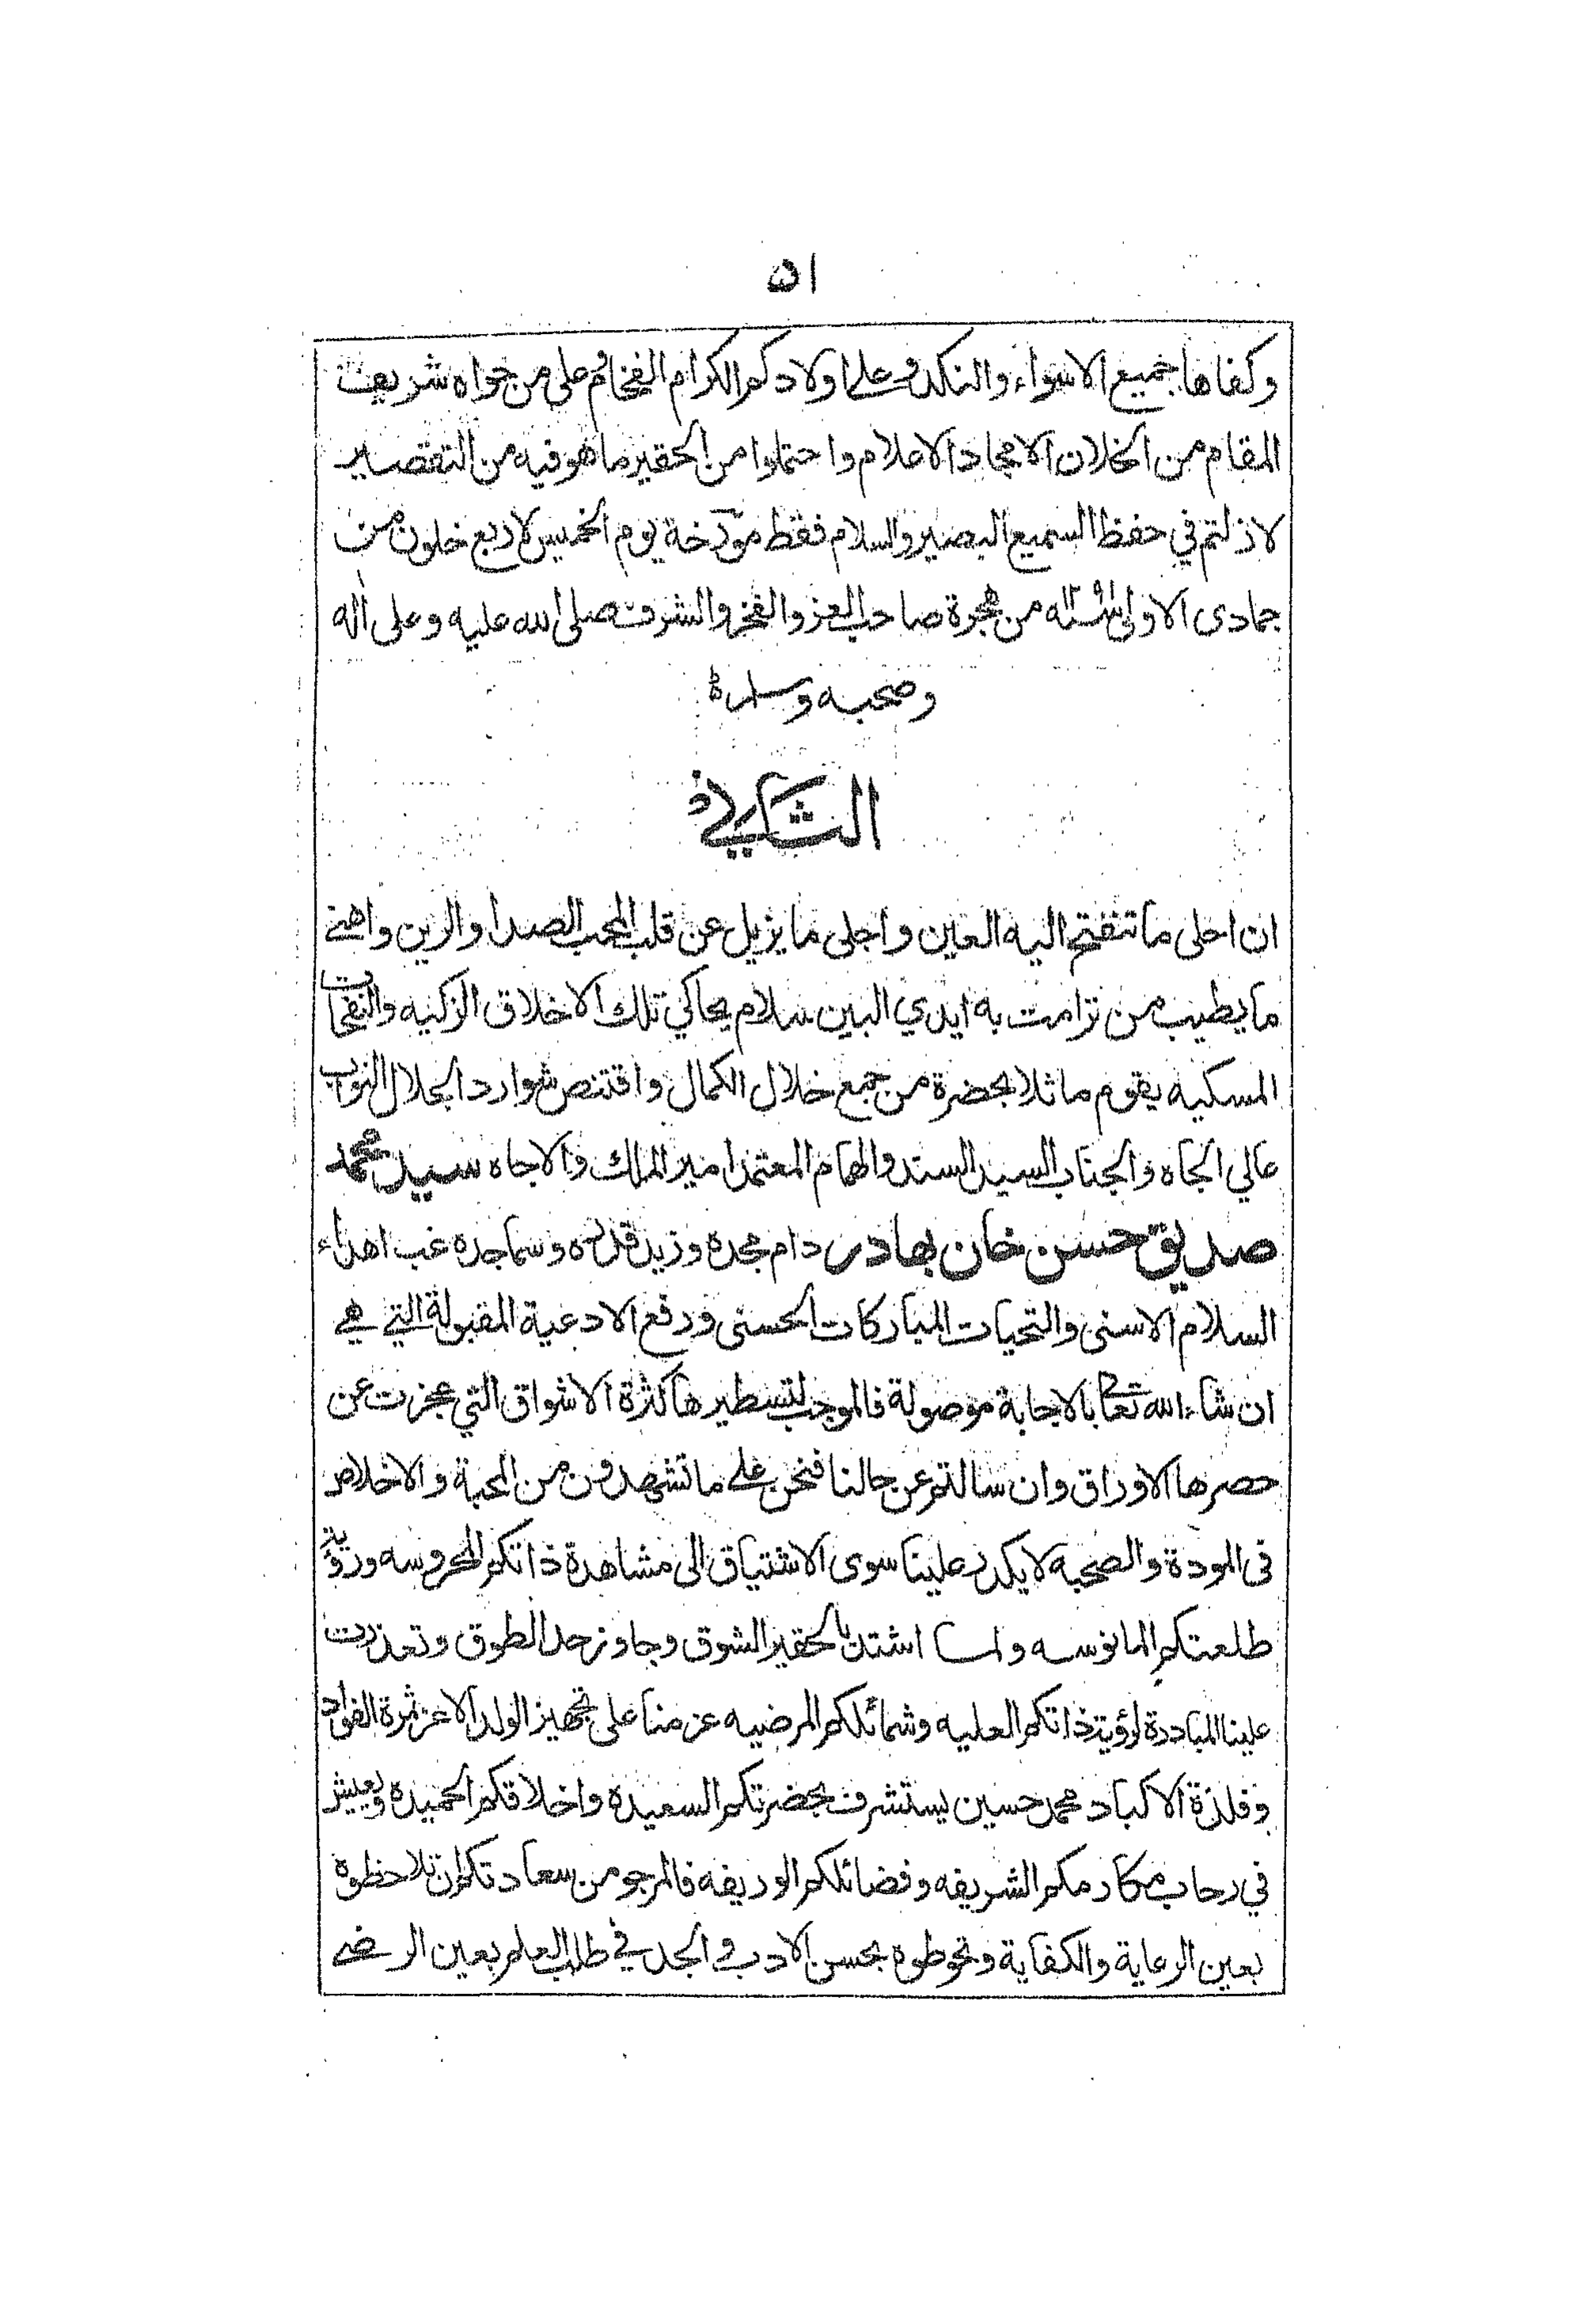 ٥١
وكفاها جميع الاسواء والنكد وعلى اولادكم الكرام الفخام وعلى من حواه شريف
المقام من الخلان الامجاد الاعلام واحتملوا من الحقير ما هو فيه من التقصير
لازلتم في حفظ السميع البصير والسلام فقط مؤرخة يوم الخميس لاربع خلون من
جمادى الاولى من هجرة صاحب العز والفخر والشرف صلى الله عليه وعلى اله
وصحبه وسلم
الثاني
ان احلى ما تنفتح اليه العين واجلى ما يزيل عن قلب المحب الصدا والرين واهنى
ما يطيب من ترامت به ايدي البين سلام يحاكي تلك الاخلاق الزكيه والنفحات
المسكيه يقوم ماثلا بحضرة من جمع خلال الكمال واقتنص شوارد الجلال النواب
عالي الجاه والجناب السيد السند والهمام المعتمد امير الملك والاجاه سيد محمد
صديق حسن خان بهادر دام مجده وزيد قدره وسما جده غب اهداء
السلام الاسنى والتحيات المباركات الحسنى ورفع الادعية المقبولة التي هي
ان شاء الله تعالى بالاجابة موصولة فالموجب لتسطيرها كثرة الاشواق التي عجزت عن
حصرها الاوراق وان سالتم عن حالنا فنحن على ما تشهدون من المحبة والاخلاص
فى المودة والصحبه لا يكدر علينا سوى الاشتياق الى مشاهدة ذاتكم المحروسه ورؤية
طلعتكم المانوسه ولما اشتد بالحقير الشوق وجاوز حد الطوق وتعذرت
علينا المبادرة لرؤية ذاتكم العليه وشمائلكم المرضيه عزمنا على تجهيز الولد الاعز ثمرة الفواد
وفلذة الاكباد محمد حسين يستشرف بحضرتكم السعيدة واخلاقكم الحميده ويعيش
في رحاب مكارمكم الشريفه وفضائلكم الوريفه فالمرجو من سعادتكم ان تلاحظوه
بعين الرعاية والكفاية وتحوطوه بحسن الادب والجد في طلب العلم بعين الرضى